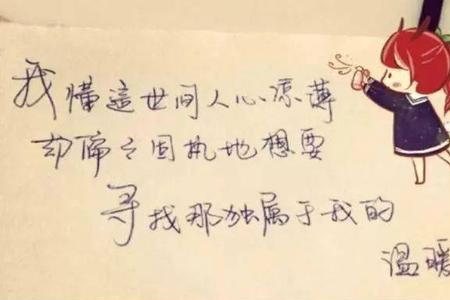 我懂這世间人心凉薄
却偏々固执地想要
寻找那独属于我的
温暖